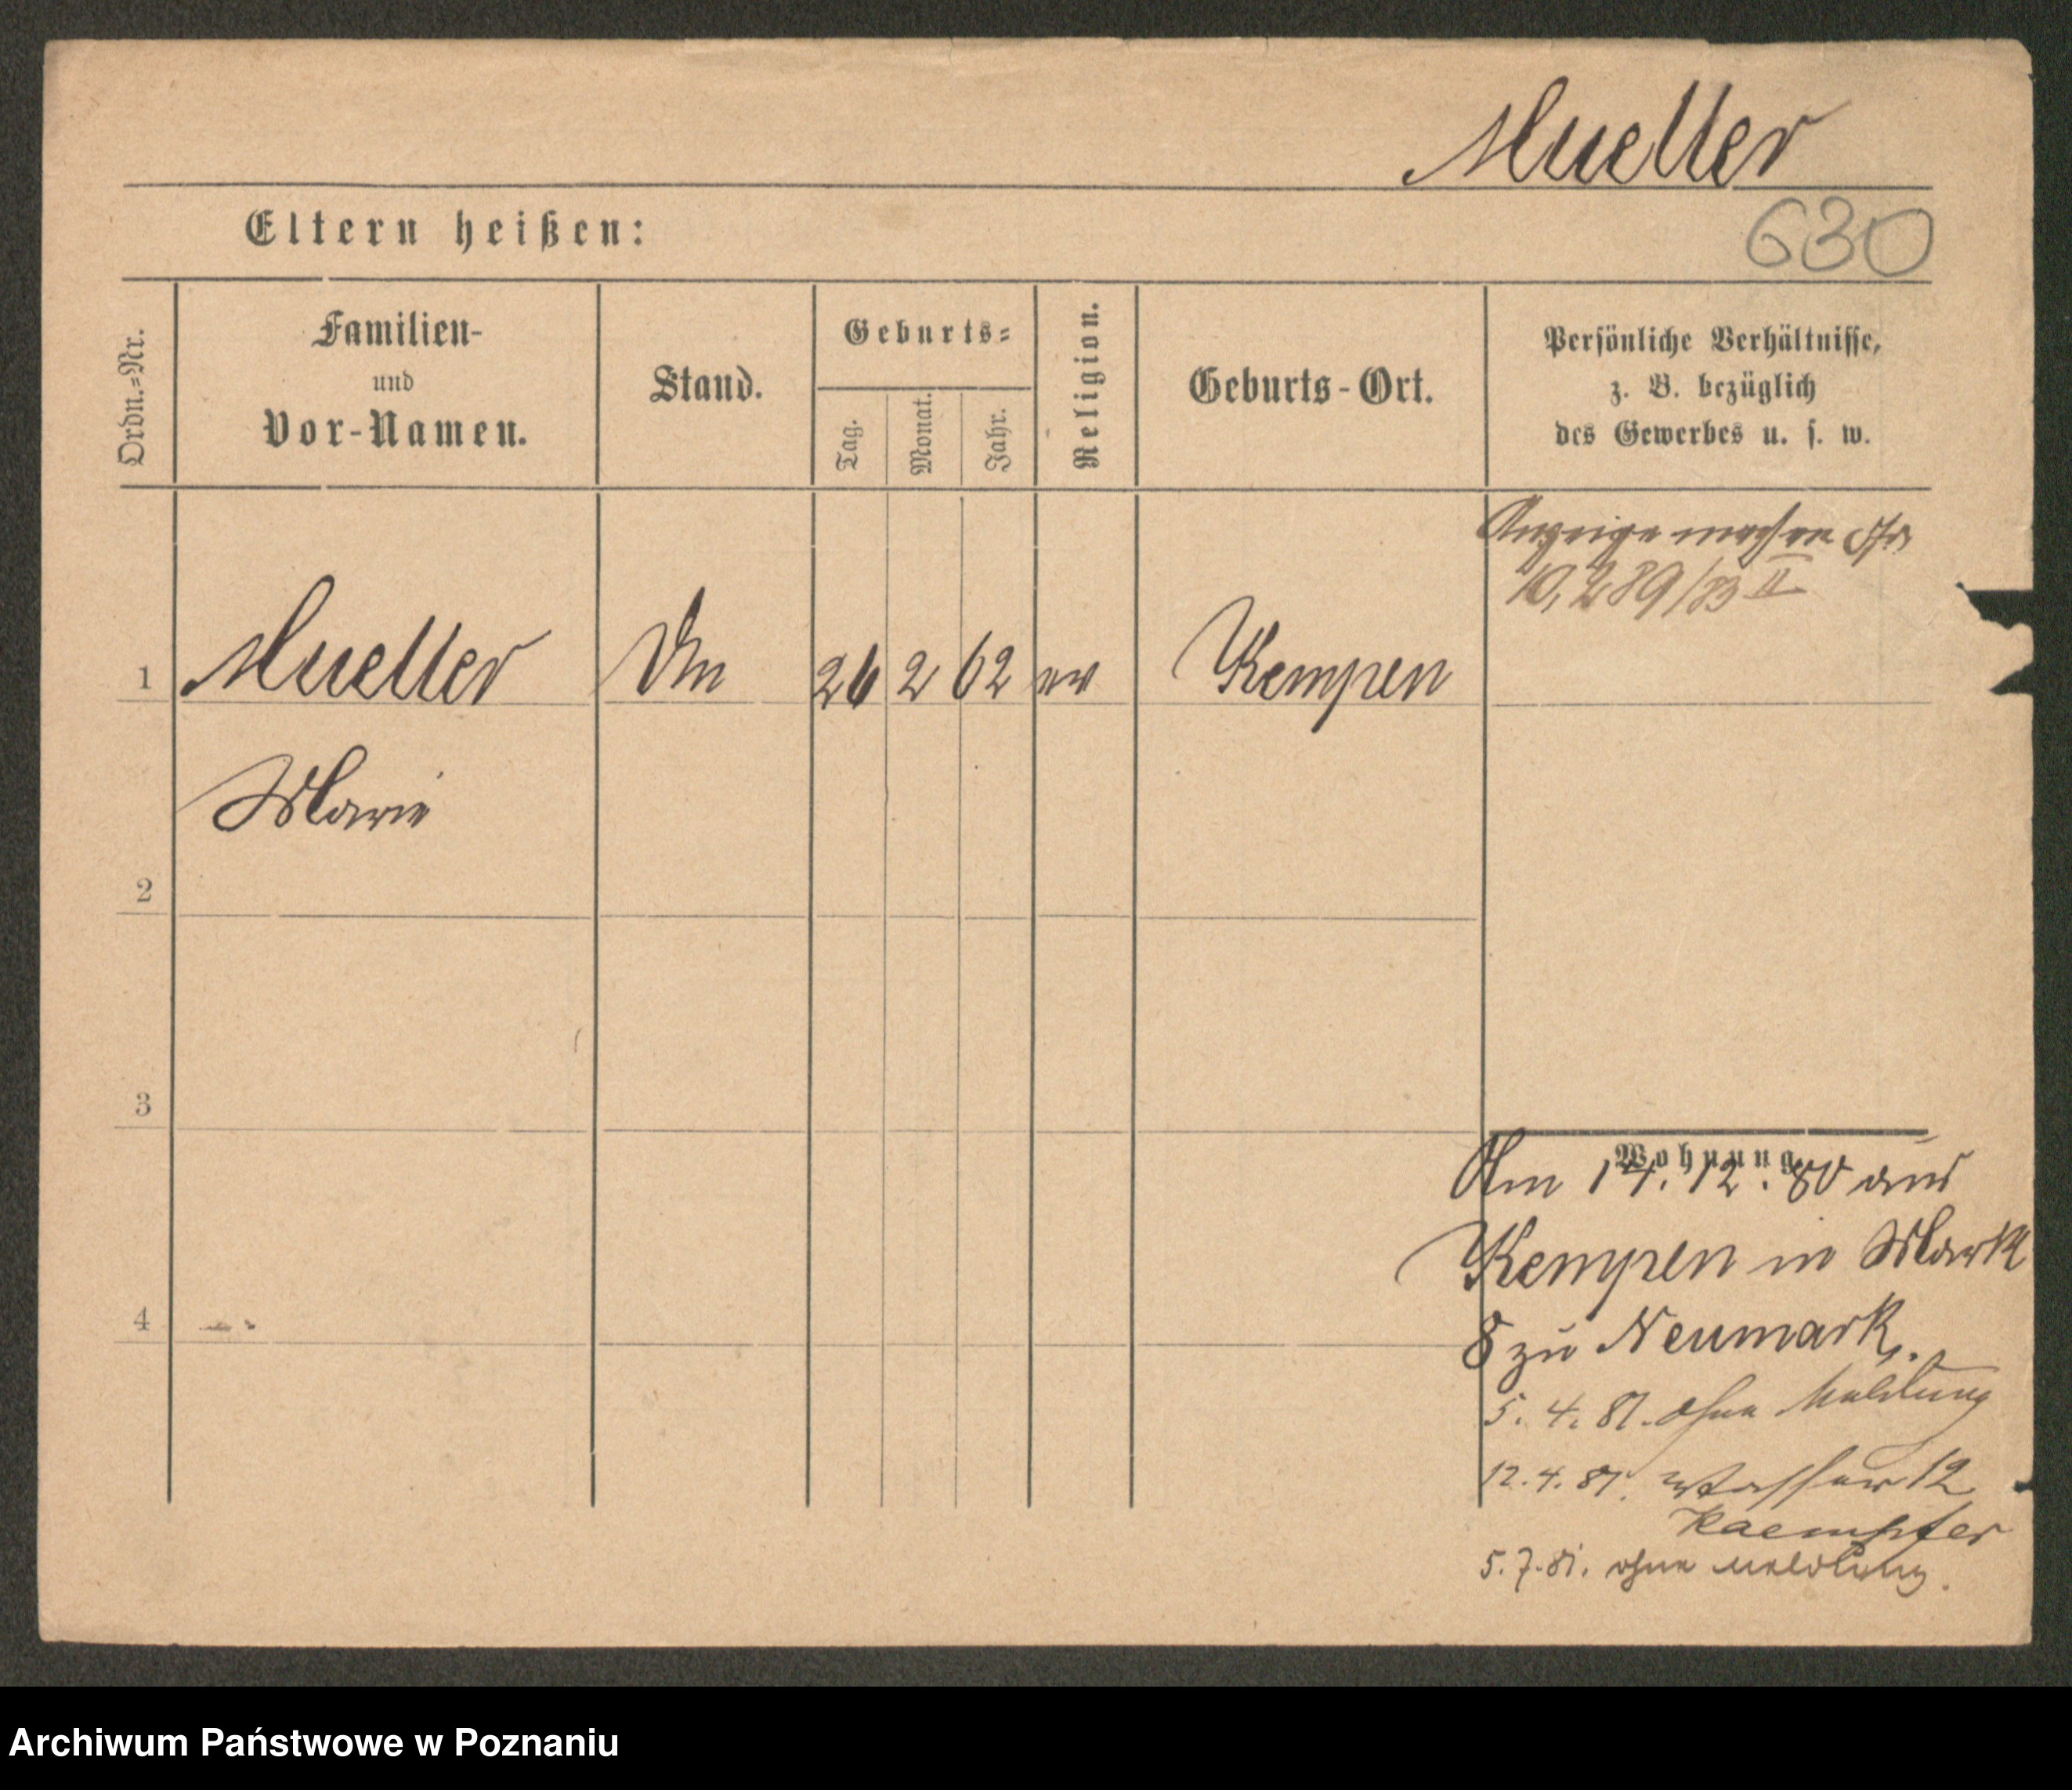 Mueller
630
Eltern heißen:
Ordn.=Nr.
Familien-
und
Vor-Namen.
Stand.
Geburts=
Tag.
Monat.
Jahr.
Religion.
Geburts-Ort.
Persönliche Verhältnisse,
z. B. bezüglich
des Gewerbes u. s. w.
Anzeige machen
10,289/83 II
1 Mueller 26 2 62 ev Kempen
Marie
2
3
Wohnung.
Am 14. 12. 80 aus
Kempen in Markt
4
8 zu Neumark.
5. 4. 81. ohne Meldung
12. 4. 81. Wasser 12
Kaempfer
5. 7. 81. ohne Meldung.
Archiwum Państwowe w Poznaniu